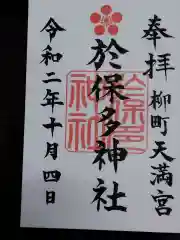 奉拝
柳町天満宮
於保多神社
令和二年十月四日